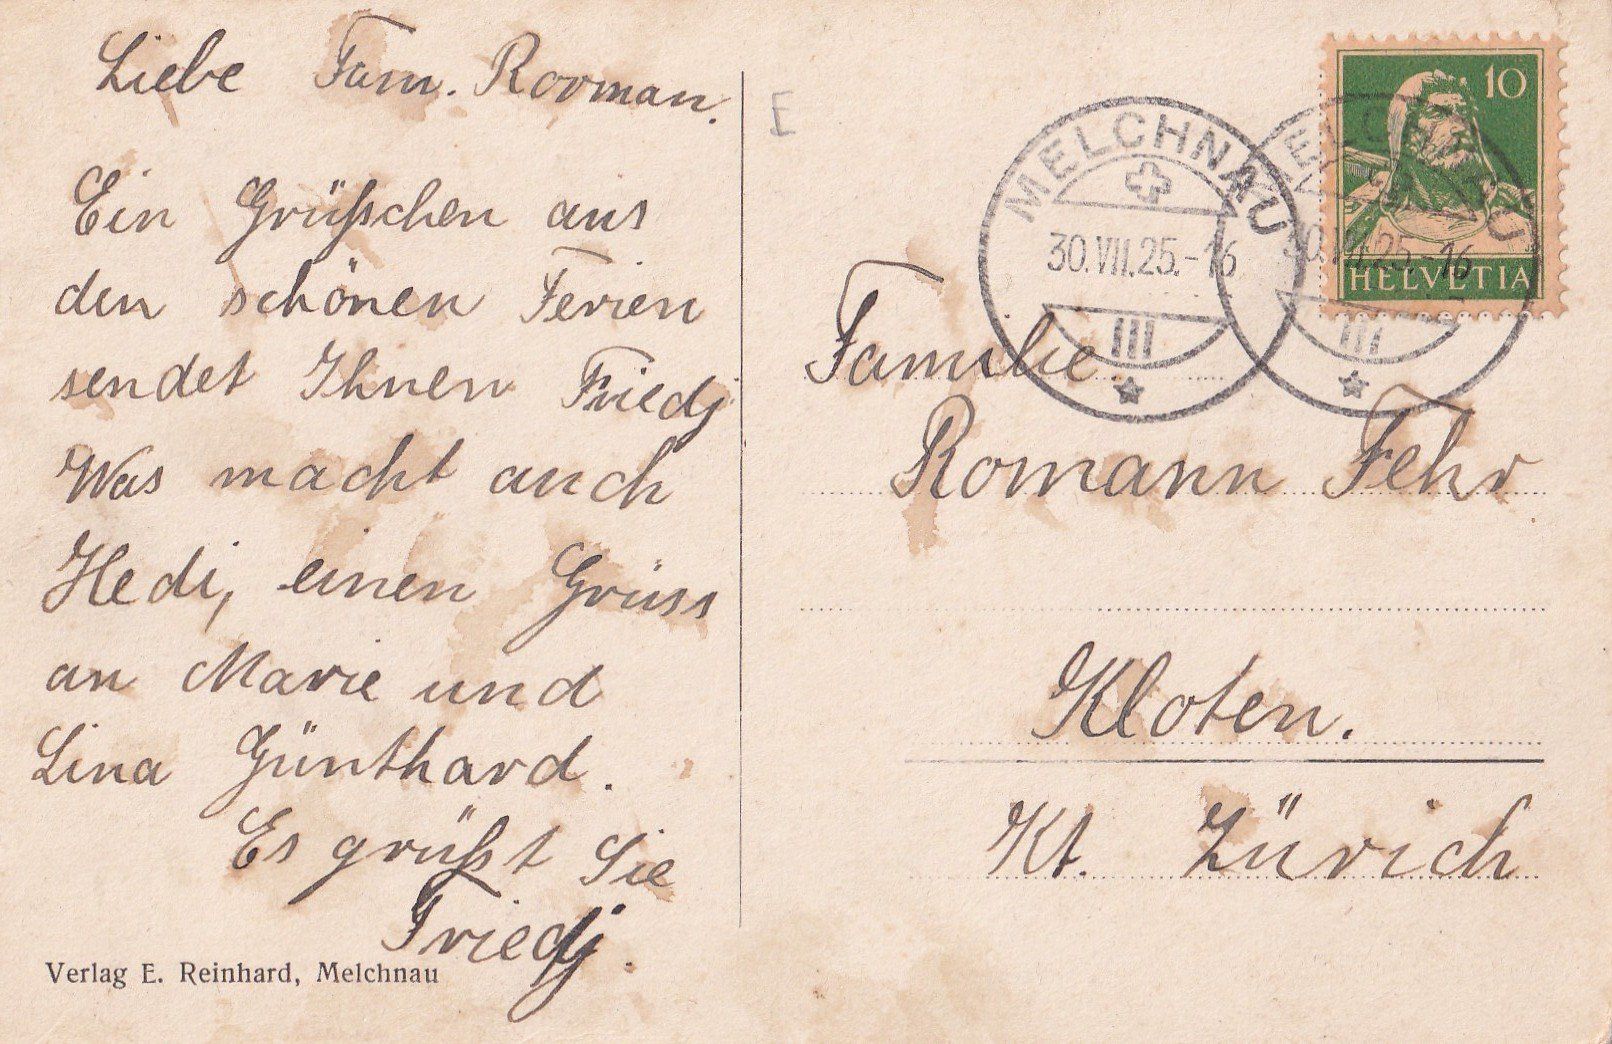 Liebe Fam. Rooman.
Ein Grüßchen aus
den schönen Ferien
sendet Ihnen Friedj
Was macht auch
Hedi, einen Gruss
an Marie und
Lina Günthard.
Es grüßt Sie
Friedj.
Verlag E. Reinhard, Melchnau
E
MELCHNAU
30.VII.25.-16
III
MELCHNAU
30.VII.25.-16
III
10
HELVETIA
Familie
Romann Fehr
Kloten.
Kt. Zürich